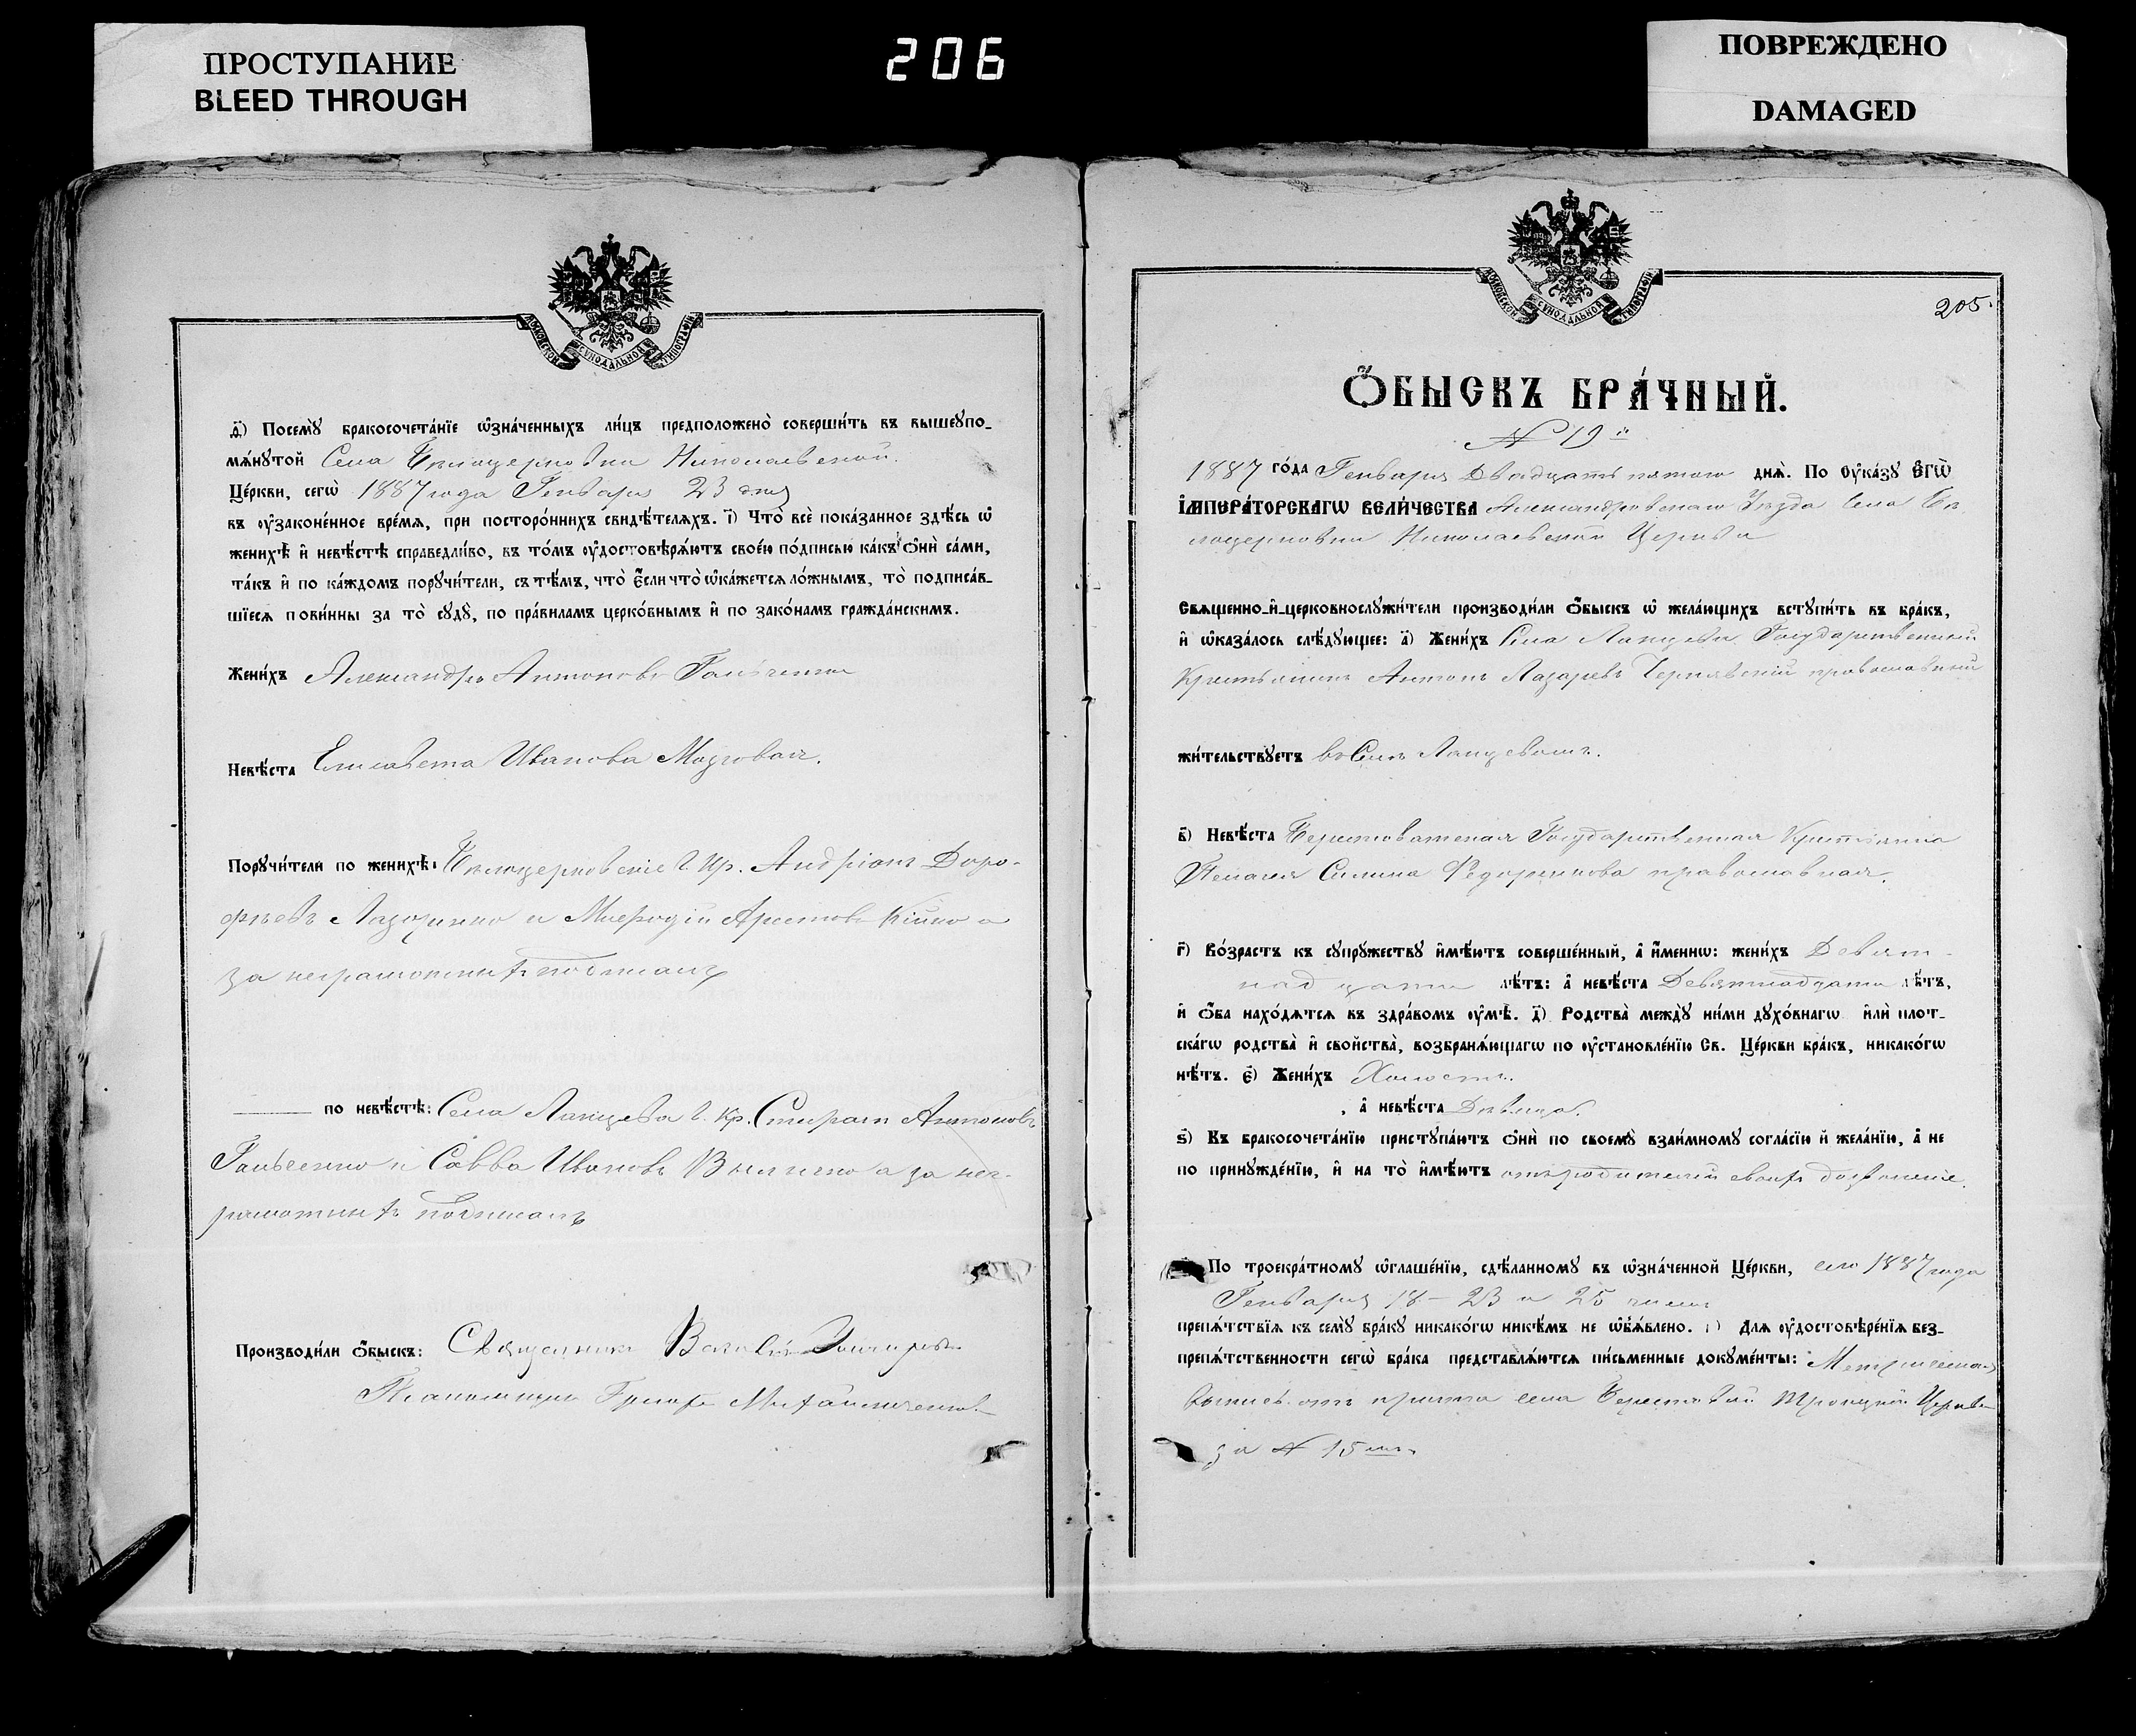 ПРОСТУПАНИЕ
BLEED THROUGH
206
ПОВРЕЖДЕНО
DAMAGED
МОСКОВСКОЙ СѴНОДАЛЬНОЙ ТИПОГРАФІИ
д҃і) Посемꙋ̀ бракосочета́нїе ѡ҆зна́ченныхъ ли́цъ предположено̀ соверши́ть въ вышеꙋпо-
мѧ́нꙋтой Села Бѣлоцерковки Николаевской
Це́ркви, сегѡ̀ 1887 года Генваря 23 дня
въ ᲂу҆зако́ненное вре́мѧ, при посторо́ннихъ свидѣ́телѧхъ. і҃) Что̀ всѐ пока́занное здѣ́сь ѡ҆
женихѣ̀ и҆ невѣ́стѣ справедли́во, въ то́мъ ᲂу҆достовѣрѧ́ютъ свое́ю по́дписью ка́къ ѻ҆нѝ са́ми,
та́къ и҆ по ка́ждомъ порꙋчи́тели, съ тѣ́мъ, что̀ є҆́сли что̀ ѡ҆ка́жетсѧ ло́жнымъ, то̀ подписа́в-
шїесѧ пови́нны за то̀ сꙋдꙋ̀, по пра́виламъ церко́внымъ и҆ по зако́намъ гражда́нскимъ.
Жени́хъ Александръ Антоновъ Гальченко
Невѣ́ста Елисавета Иванова Мозговая.
Порꙋчи́тели по женихѣ̀: Бѣлоцерковскіе Г. Кр. Андріанъ Доро-
фѣевъ Лазоренко и Мефодій Аристовъ Кійко а
за неграмотныхъ подписалъ
по невѣ́стѣ: Села Ланцева Г. Кр. Стиратъ Антоновъ
Гальченко и Савва Ивановъ а за нег-
рамотныхъ подписалъ
Производи́ли ѻ҆́быскъ: Священникъ Василій
Псаломщикъ Григорій
МОСКОВСКОЙ СѴНОДАЛЬНОЙ ТИПОГРАФІИ
205.
Ѻ҆́БЫСКЪ БРА́ЧНЫЙ.
N 19й
1887 го́да Генваря Двадцать пятого днѧ̀. По ᲂу҆ка́зꙋ Є҆ГѠ̀
І҆МПЕРА́ТОРСКАГѠ ВЕЛИ́ЧЕСТВА Александровскаго Уѣзда Села Бѣ-
лоцерковки Николаевской Церкви
Свѧще́нно-и҆-церковнослꙋжи́тели производи́ли ѻ҆́быскъ ѡ҆ жела́ющихъ встꙋпи́ть въ бра́къ,
и҆ ѡ҆каза́лось слѣ́дꙋющее: а҃) Жени́хъ Села Ланцева Государственный
Крестьянинъ Антонъ Лазаревъ Чернявскій православный
жи́тельствꙋетъ въ Селѣ Ланцевомъ.
в҃) Невѣ́ста Берестоватская Государственная Крестьянка
Пелагея Силина Федоренкова православная.
г҃) Во́зрастъ къ сꙋпрꙋ́жествꙋ и҆мѣ́ютъ соверше́нный, а҆ и҆́меннѡ: жени́хъ Девят-
надцати лѣ́тъ: а҆ невѣ́ста Девятнадцати лѣ́тъ,
и҆ ѻ҆́ба нахо́дѧтсѧ въ здра́вомъ ᲂу҆мѣ̀. д҃) Родства̀ междꙋ̀ ни́ми дꙋхо́внагѡ и҆лѝ плот-
ска́гѡ родства̀ и҆ свойства̀, возбранѧ́ющагѡ по ᲂу҆становле́нїю Св. Це́ркви бра́къ, никако́гѡ
нѣ́тъ. є҃) Жени́хъ Холостъ.
, а҆ невѣ́ста Дѣвица.
ѕ҃) Къ бракосочета́нїю пристꙋпа́ютъ ѻ҆нѝ по своемꙋ̀ взаи́мномꙋ согла́сїю и҆ жела́нїю, а҆ не
по принꙋжде́нїю, и҆ на то̀ и҆мѣ́ютъ отъ родителей своихъ дозволеніе.
По троекра́тномꙋ ѡ҆глаше́нїю, сдѣ́ланномꙋ въ ѡ҆зна́ченной Це́ркви, сего 1887 года
Генваря 18 – 23 и 25 числъ
препѧ́тствїѧ къ семꙋ̀ бра́кꙋ никако́гѡ никѣ́мъ не ѡ҆б̾ѧ́влено. и҃) Длѧ ᲂу҆достовѣре́нїѧ без-
препѧ́тственности сегѡ̀ бра́ка представлѧ́ютсѧ пи́сьменные докꙋме́нты: Метрическая
выпись отъ причта села Берестовой Троицкой Церкви
за N 15мъ